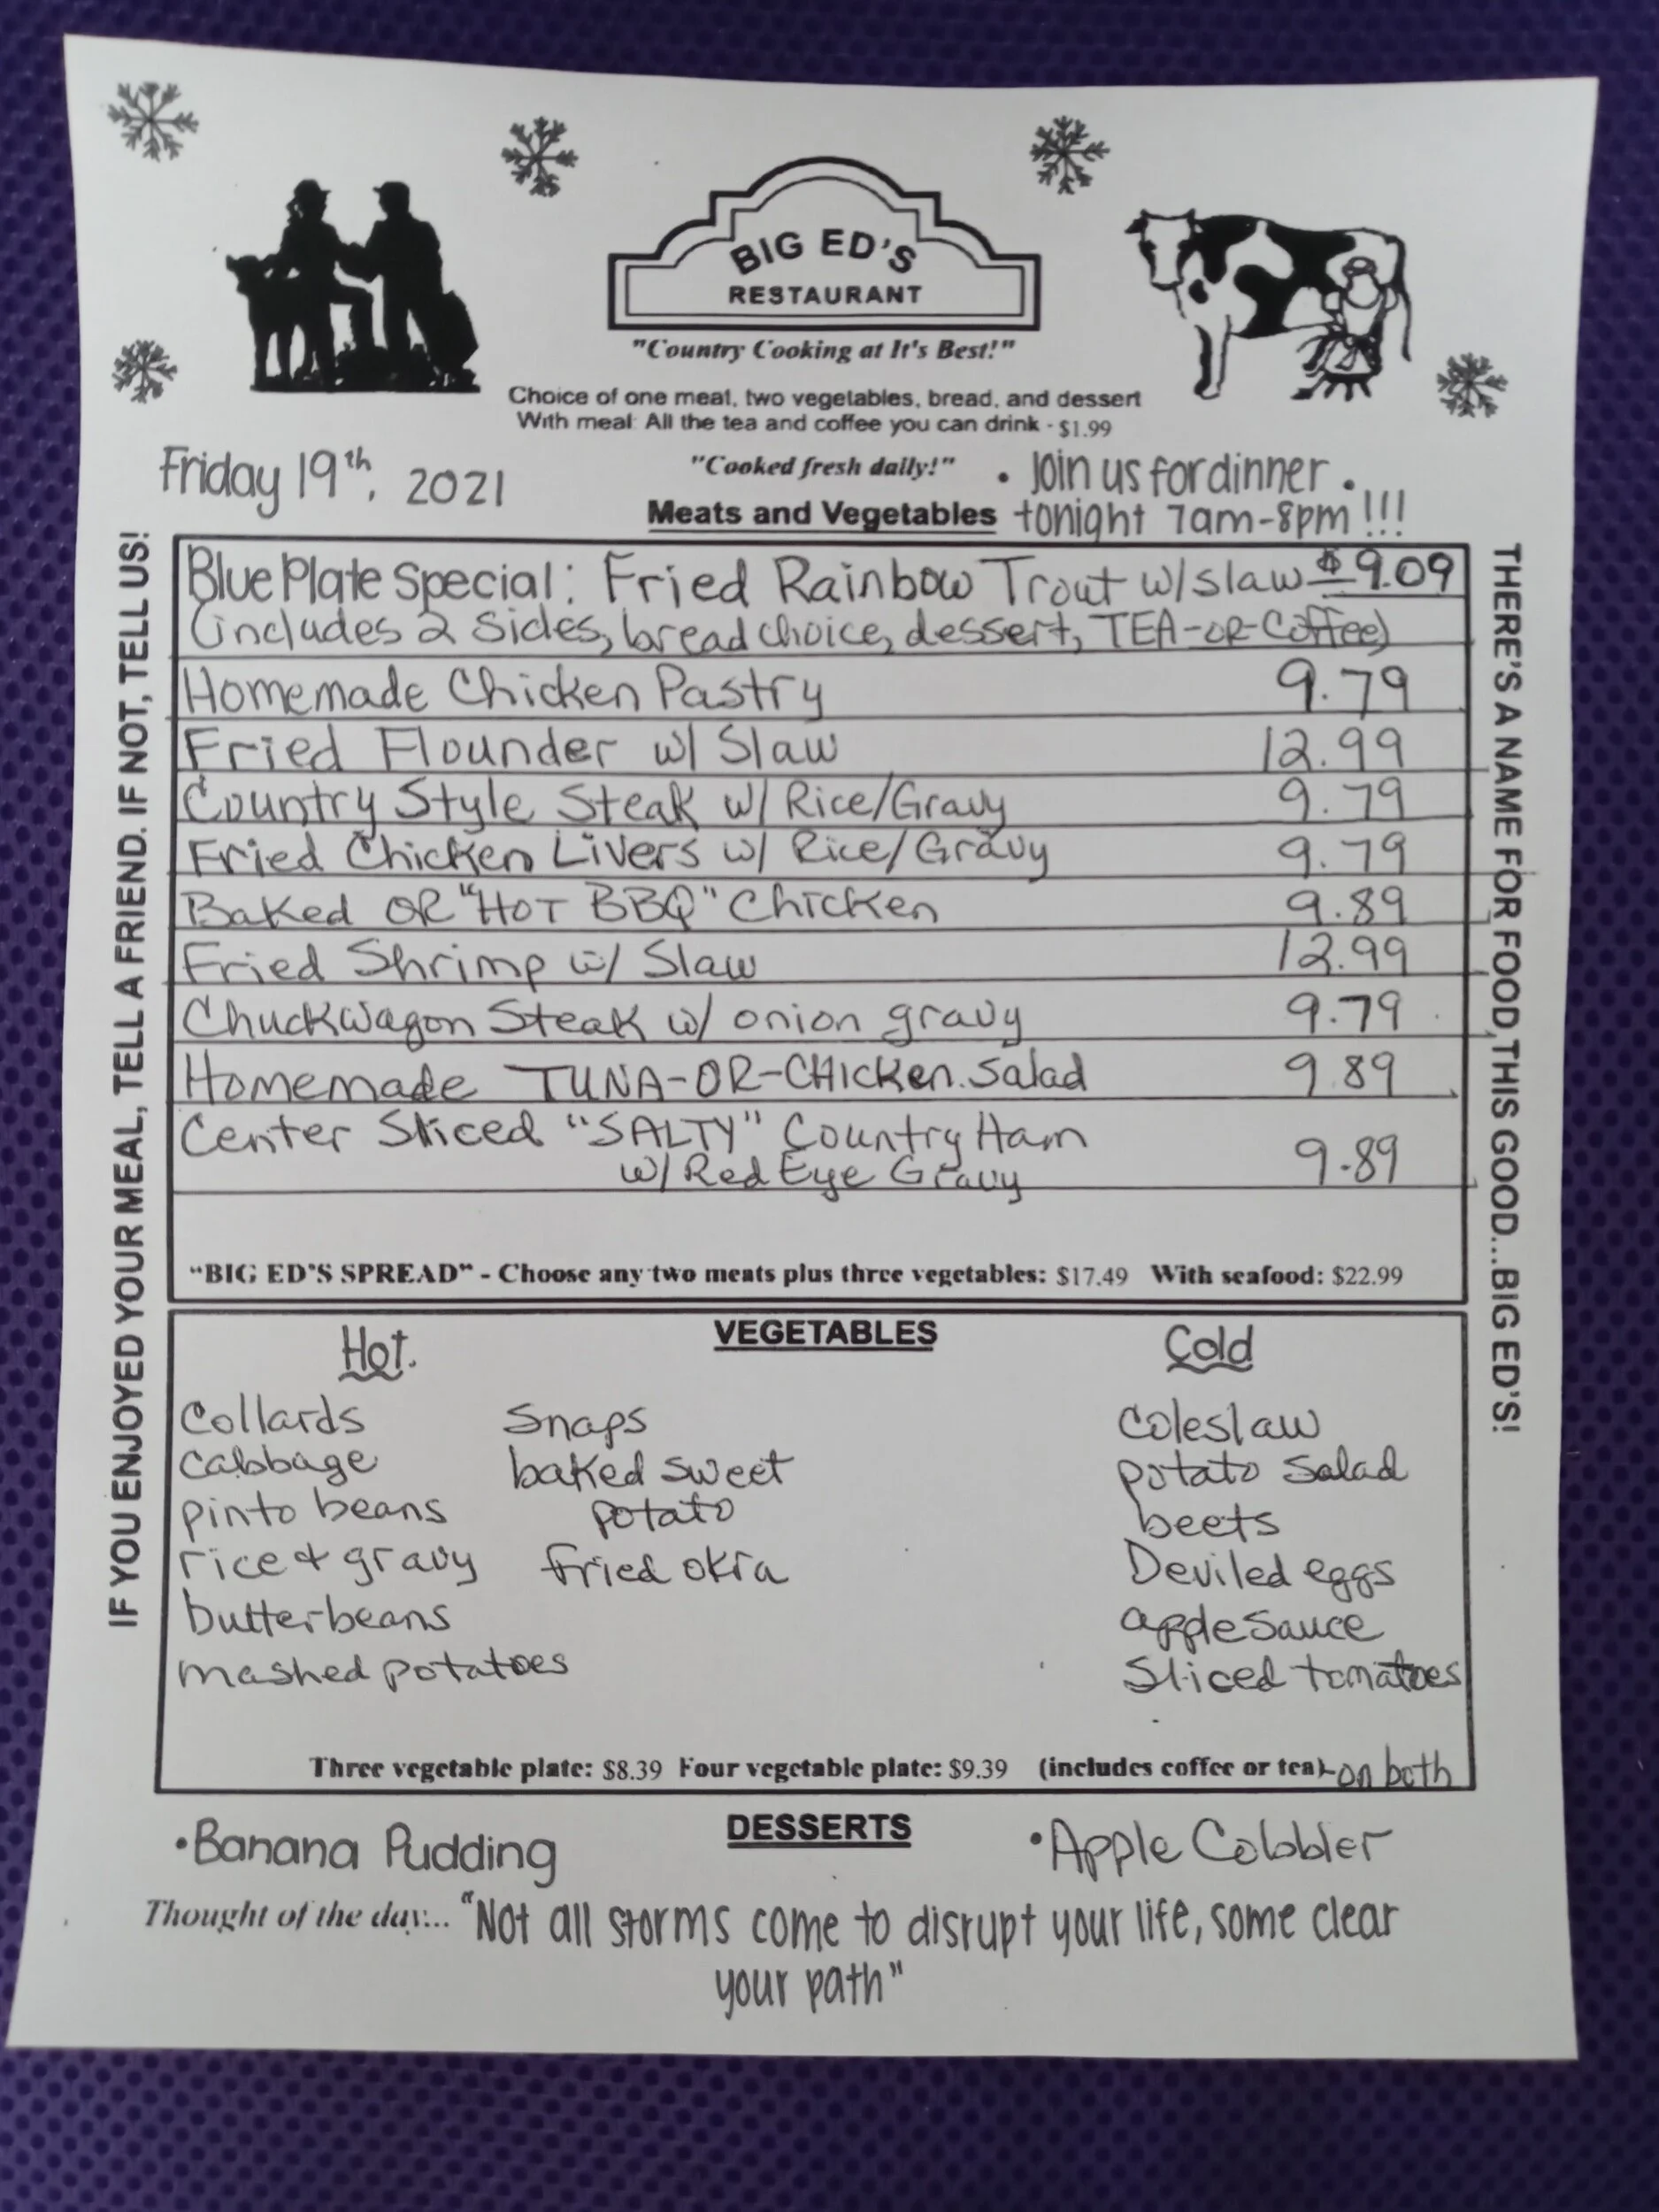 BIG ED'S
RESTAURANT
"Country Cooking at It's Best!"
Choice of one meat, two vegetables, bread, and dessert
With meal: All the tea and coffee you can drink - $1.99
"Cooked fresh daily!"
Friday 19th, 2021
• Join us for dinner •
tonight 7am-8pm!!!
Meats and Vegetables
IF YOU ENJOYED YOUR MEAL, TELL A FRIEND. IF NOT, TELL US!
Blue Plate Special: Fried Rainbow Trout w/slaw $9.09
(includes 2 sides, bread choice, dessert, TEA-OR-Coffee)
Homemade Chicken Pastry 9.79
Fried Flounder w/ Slaw 12.99
Country Style Steak w/ Rice/Gravy 9.79
Fried Chicken Livers w/ Rice/Gravy 9.79
Baked OR "HOT BBQ" Chicken 9.89
Fried Shrimp w/ Slaw 12.99
Chuckwagon Steak w/ onion gravy 9.79
Homemade TUNA-OR-CHicken Salad 9.89
Center Sliced "SALTY" Country Ham
w/ Red Eye Gravy 9.89
"BIG ED'S SPREAD" - Choose any two meats plus three vegetables: $17.49 With seafood: $22.99
THERE'S A NAME FOR FOOD, THIS GOOD...BIG ED'S!
VEGETABLES
Hot.
Collards
Cabbage
pinto beans
rice & gravy
butterbeans
mashed potatoes
Snaps
baked sweet
potato
fried okra
Cold
Coleslaw
potato salad
beets
Deviled eggs
applesauce
Sliced tomatoes
Three vegetable plate: $8.39 Four vegetable plate: $9.39 (includes coffee or tea)-on both
DESSERTS
•Banana Pudding
•Apple Cobbler
Thought of the day... "Not all storms come to disrupt your life, some clear
your path"